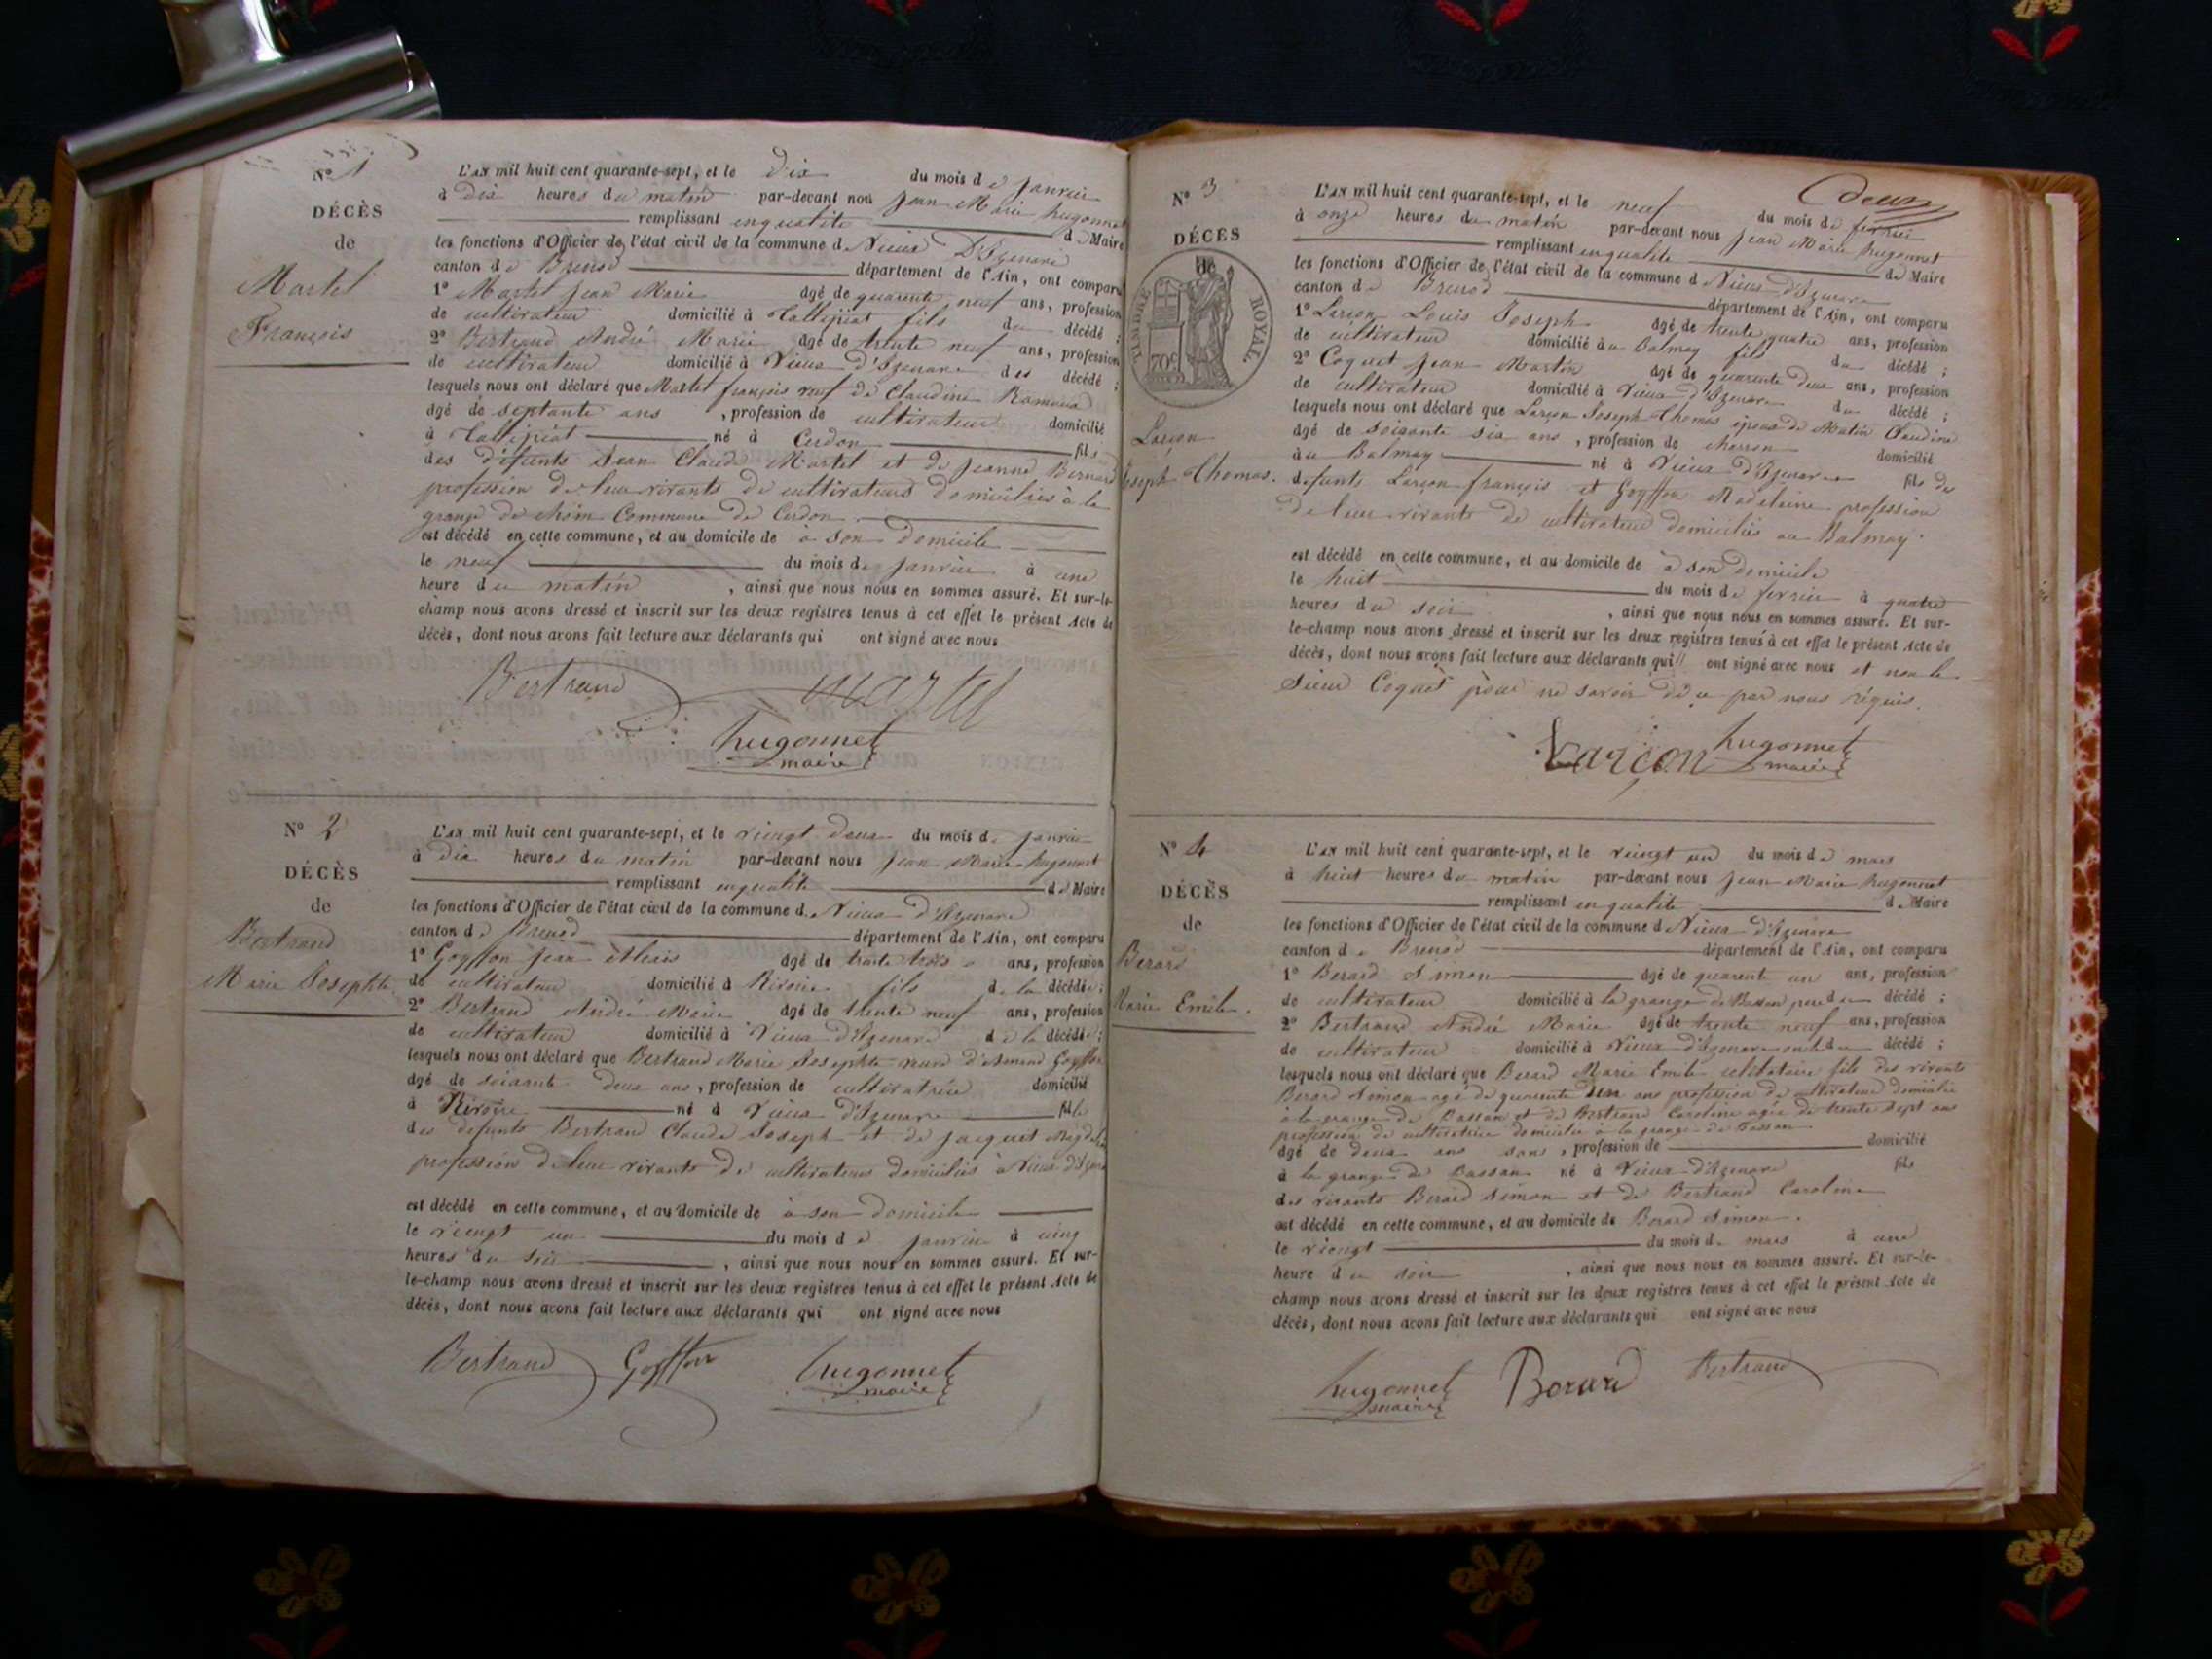 N° 1
DÉCÈS
de
Martel
François
L'an mil huit cent quarante-sept, et le dix du mois de janvier
à dix heures du matin par-devant nou Jean Marie hugonnet
remplissant en qualité de Maire
les fonctions d'Officier de l'état civil de la commune d Vieux D'Izenave
canton de Brenod département de l'Ain, ont comparu
1° Martel Jean Marie âgé de quarente neuf ans, profession
de cultivateur domicilié à fils du décédé ;
2° Bertrand André Marie âgé de trente neuf ans, profession
de cultivateur domicilié à Vieux d'Izenave des décédé ;
lesquels nous ont déclaré que Martel françois veuf de Claudine
âgé de septante ans , profession de cultivateur domicilié
à né à Cerdon fils
des défunts Jean Claude Martel et de Jeanne Bernard
profession de leur vivants de cultivateurs domiciliés à la
grange de Commune de Cerdon
est décédé en cette commune, et au domicile de à son domicile
le neuf du mois de janvier à une
heure du matin , ainsi que nous nous en sommes assuré. Et sur-le-
champ nous avons dressé et inscrit sur les deux registres tenus à cet effet le présent Acte de
décès, dont nous avons fait lecture aux déclarants qui ont signé avec nous
Bertrand martel
hugonnet
maire
N° 2
DÉCÈS
de
Bertrand
Marie Josephte
L'an mil huit cent quarante-sept, et le vingt deux du mois de janvier
à dix heures du matin par-devant nous Jean Marie hugonnet
remplissant en qualité de Maire
les fonctions d'Officier de l'état civil de la commune d Vieux d'Izenave
canton de Brenod département de l'Ain, ont comparu
1° Goyffon Jean Alexis âgé de trente trois ans, profession
de cultivateur domicilié à Rivoire fils de la décédée ;
2° Bertrand André Marie âgé de trente neuf ans, profession
de cultivateur domicilié à Vieux d'Izenave de la décédé ;
lesquels nous ont déclaré que Bertrand Marie Josephte veuve d'Armand Goyffon
âgé de soixante deux ans, profession de cultivatrice domicilié
à Rivoire né à Vieux d'Izenave fille
des defunts Bertrand Claude Joseph et de jacquet
profession de leur vivants de cultivateurs domiciliés à Vieux d'Izenave
est décédé en cette commune, et au domicile de à son domicile
le vingt un du mois de janvier à cinq
heures du soir , ainsi que nous nous en sommes assuré. Et sur-
le-champ nous avons dressé et inscrit sur les deux registres tenus à cet effet le présent Acte de
décès, dont nous avons fait lecture aux déclarants qui ont signé avec nous
Bertrand Goyffon hugonnet
maire
deux
N° 3
DÉCÈS
de
TIMBRE ROYAL
70c
Larçon
Joseph Thomas.
L'an mil huit cent quarante-sept, et le neuf du mois de fevrier
à onze heures du matin par-devant nous Jean Marie hugonnet
remplissant en qualité de Maire
les fonctions d'Officier de l'état civil de la commune d Vieux d'Izenave
canton de Brenod département de l'Ain, ont comparu
1° Larçon Louis Joseph âgé de trente quatre ans, profession
de cultivateur domicilié à au Balmay fils du décédé ;
2° Coquet Jean Martin âgé de quarente deux ans, profession
de cultivateur domicilié à Vieux d'Izenave du décédé ;
lesquels nous ont déclaré que Larçon Joseph Thomas époux de Matin Claudine
âgé de soixante six ans , profession de charron domicilié
à au Balmay né à Vieux d'Izenave fils des
defunts Larçon françois et Goyffon Madeleine profession
de leur vivants de cultivateurs domiciliés au Balmay.
est décédé en cette commune, et au domicile de à son domicile
le huit du mois de fevrier à quatre
heures du soir , ainsi que nous nous en sommes assuré. Et sur-
le-champ nous avons dressé et inscrit sur les deux registres tenus à cet effet le présent Acte de
décès, dont nous avons fait lecture aux déclarants qui ont signé avec nous et non le
sieur Coquet pour ne savoir de ce par nous réquis.
Larçon hugonnet
maire
N° 4
DÉCÈS
de
Berard
Marie Emile.
L'an mil huit cent quarante-sept, et le vingt un du mois de mars
à huit heures du matin par-devant nous Jean Marie hugonnet
remplissant en qualité de Maire
les fonctions d'Officier de l'état civil de la commune d Vieux d'Izenave
canton de Brenod département de l'Ain, ont comparu
1° Berard Simon âgé de quarente un ans, profession
de cultivateur domicilié à la grange de Bassan pere du décédé ;
2° Bertrand André Marie âgé de trente neuf ans, profession
de cultivateur domicilié à Vieux d'Izenave oncle du décédé ;
lesquels nous ont déclaré que Berard Marie Emile celibataire fils des vivants
Berard Simon agé de quarente un ans profession de cultivateur domicilié
à la grange de Bassan et de Bertrand Caroline agée de trente sept ans
profession de cultivatrice domiciliée à la grange de Bassan
âgé de deux ans sans , profession de domicilié
à la grange de Bassan né à Vieux d'Izenave fils
des vivants Berard Simon et de Bertrand Caroline
est décédé en cette commune, et au domicile de Berard Simon.
le vingt du mois de mars à une
heure du soir , ainsi que nous nous en sommes assuré. Et sur-le-
champ nous avons dressé et inscrit sur les deux registres tenus à cet effet le présent Acte de
décès, dont nous avons fait lecture aux déclarants qui ont signé avec nous
hugonnet Berard Bertrand
maire